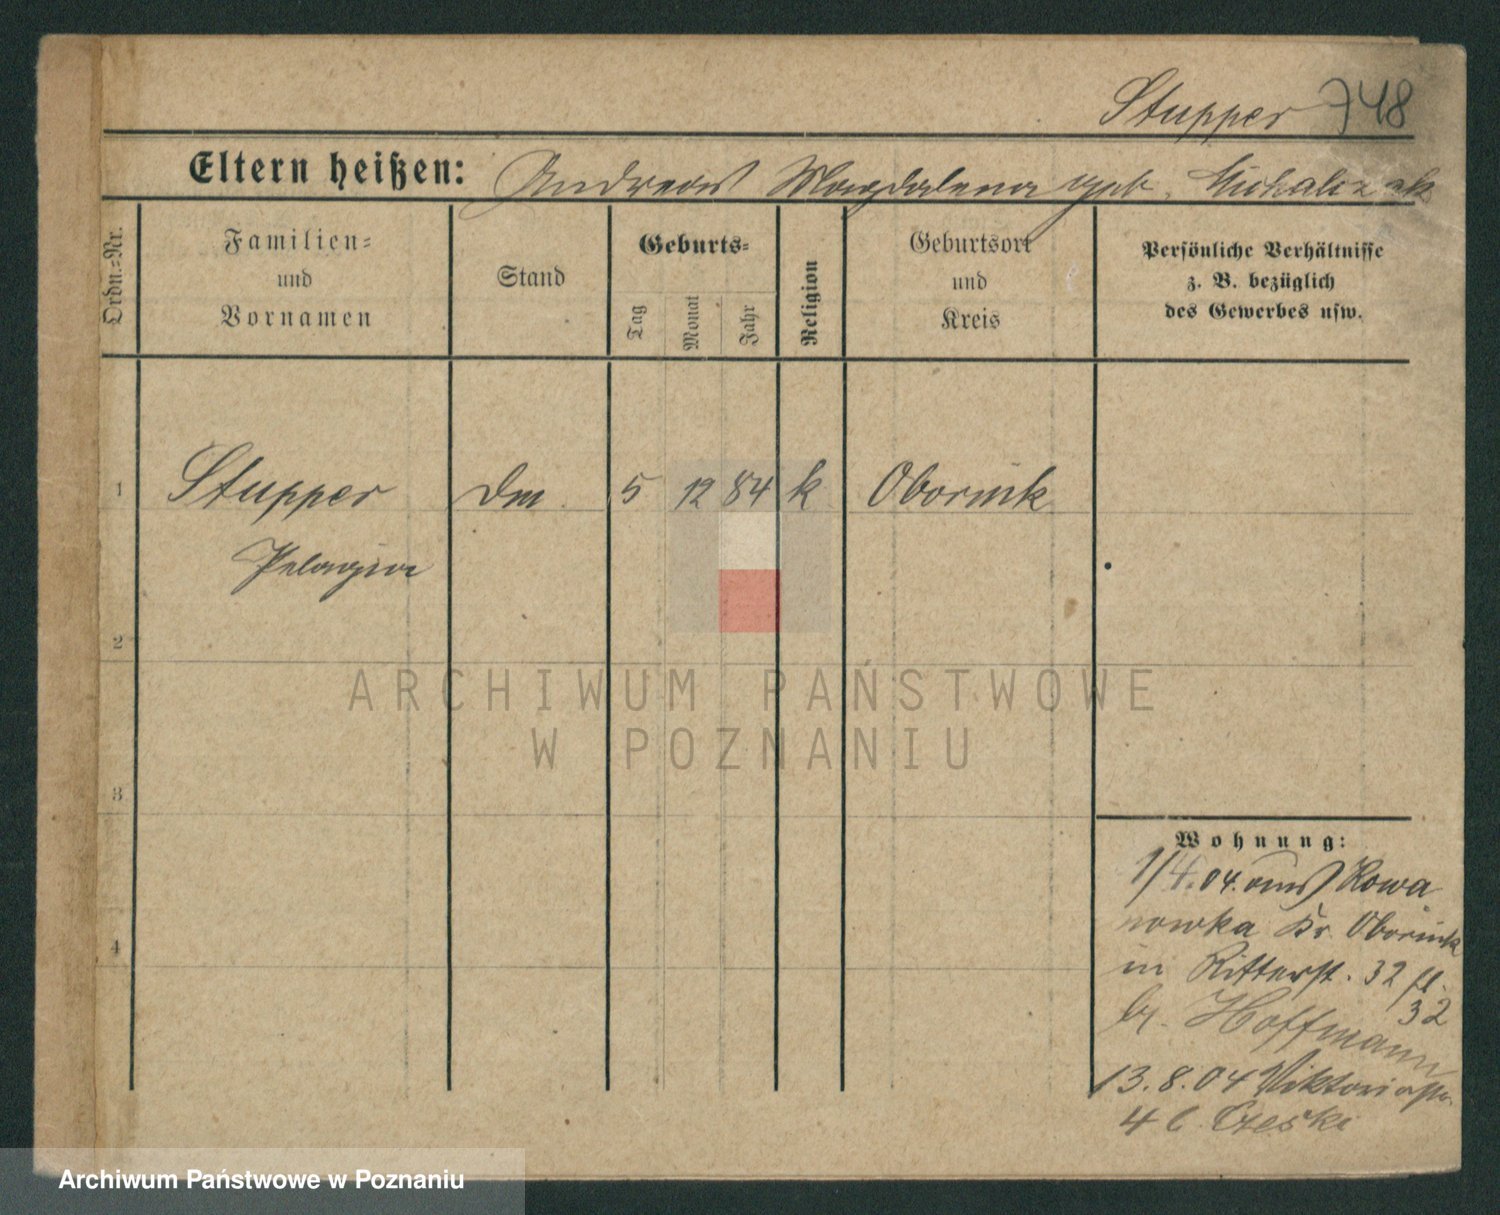 Stupper 748
Eltern heißen: Andreas Magdalena geb. Michalczak
Ordn.=Nr.
Familien=
und
Vornamen
Stand
Geburts=
Tag
Monat
Jahr
Religion
Geburtsort
und
Kreis
Persönliche Verhältnisse
z. B. bezüglich
des Gewerbes usw.
1 Stupper Dm 5 12 84 k Obornik
Pelagia
2
3
4
Wohnung:
1/4.04. aus Kowa
nowka Kr. Obornik
in Ritterst. 32
32
b. Hoffmann
13.8.04 Viktoriastr.
4 b. Czeski
ARCHIWUM PAŃSTWOWE
W POZNANIU
Archiwum Państwowe w Poznaniu